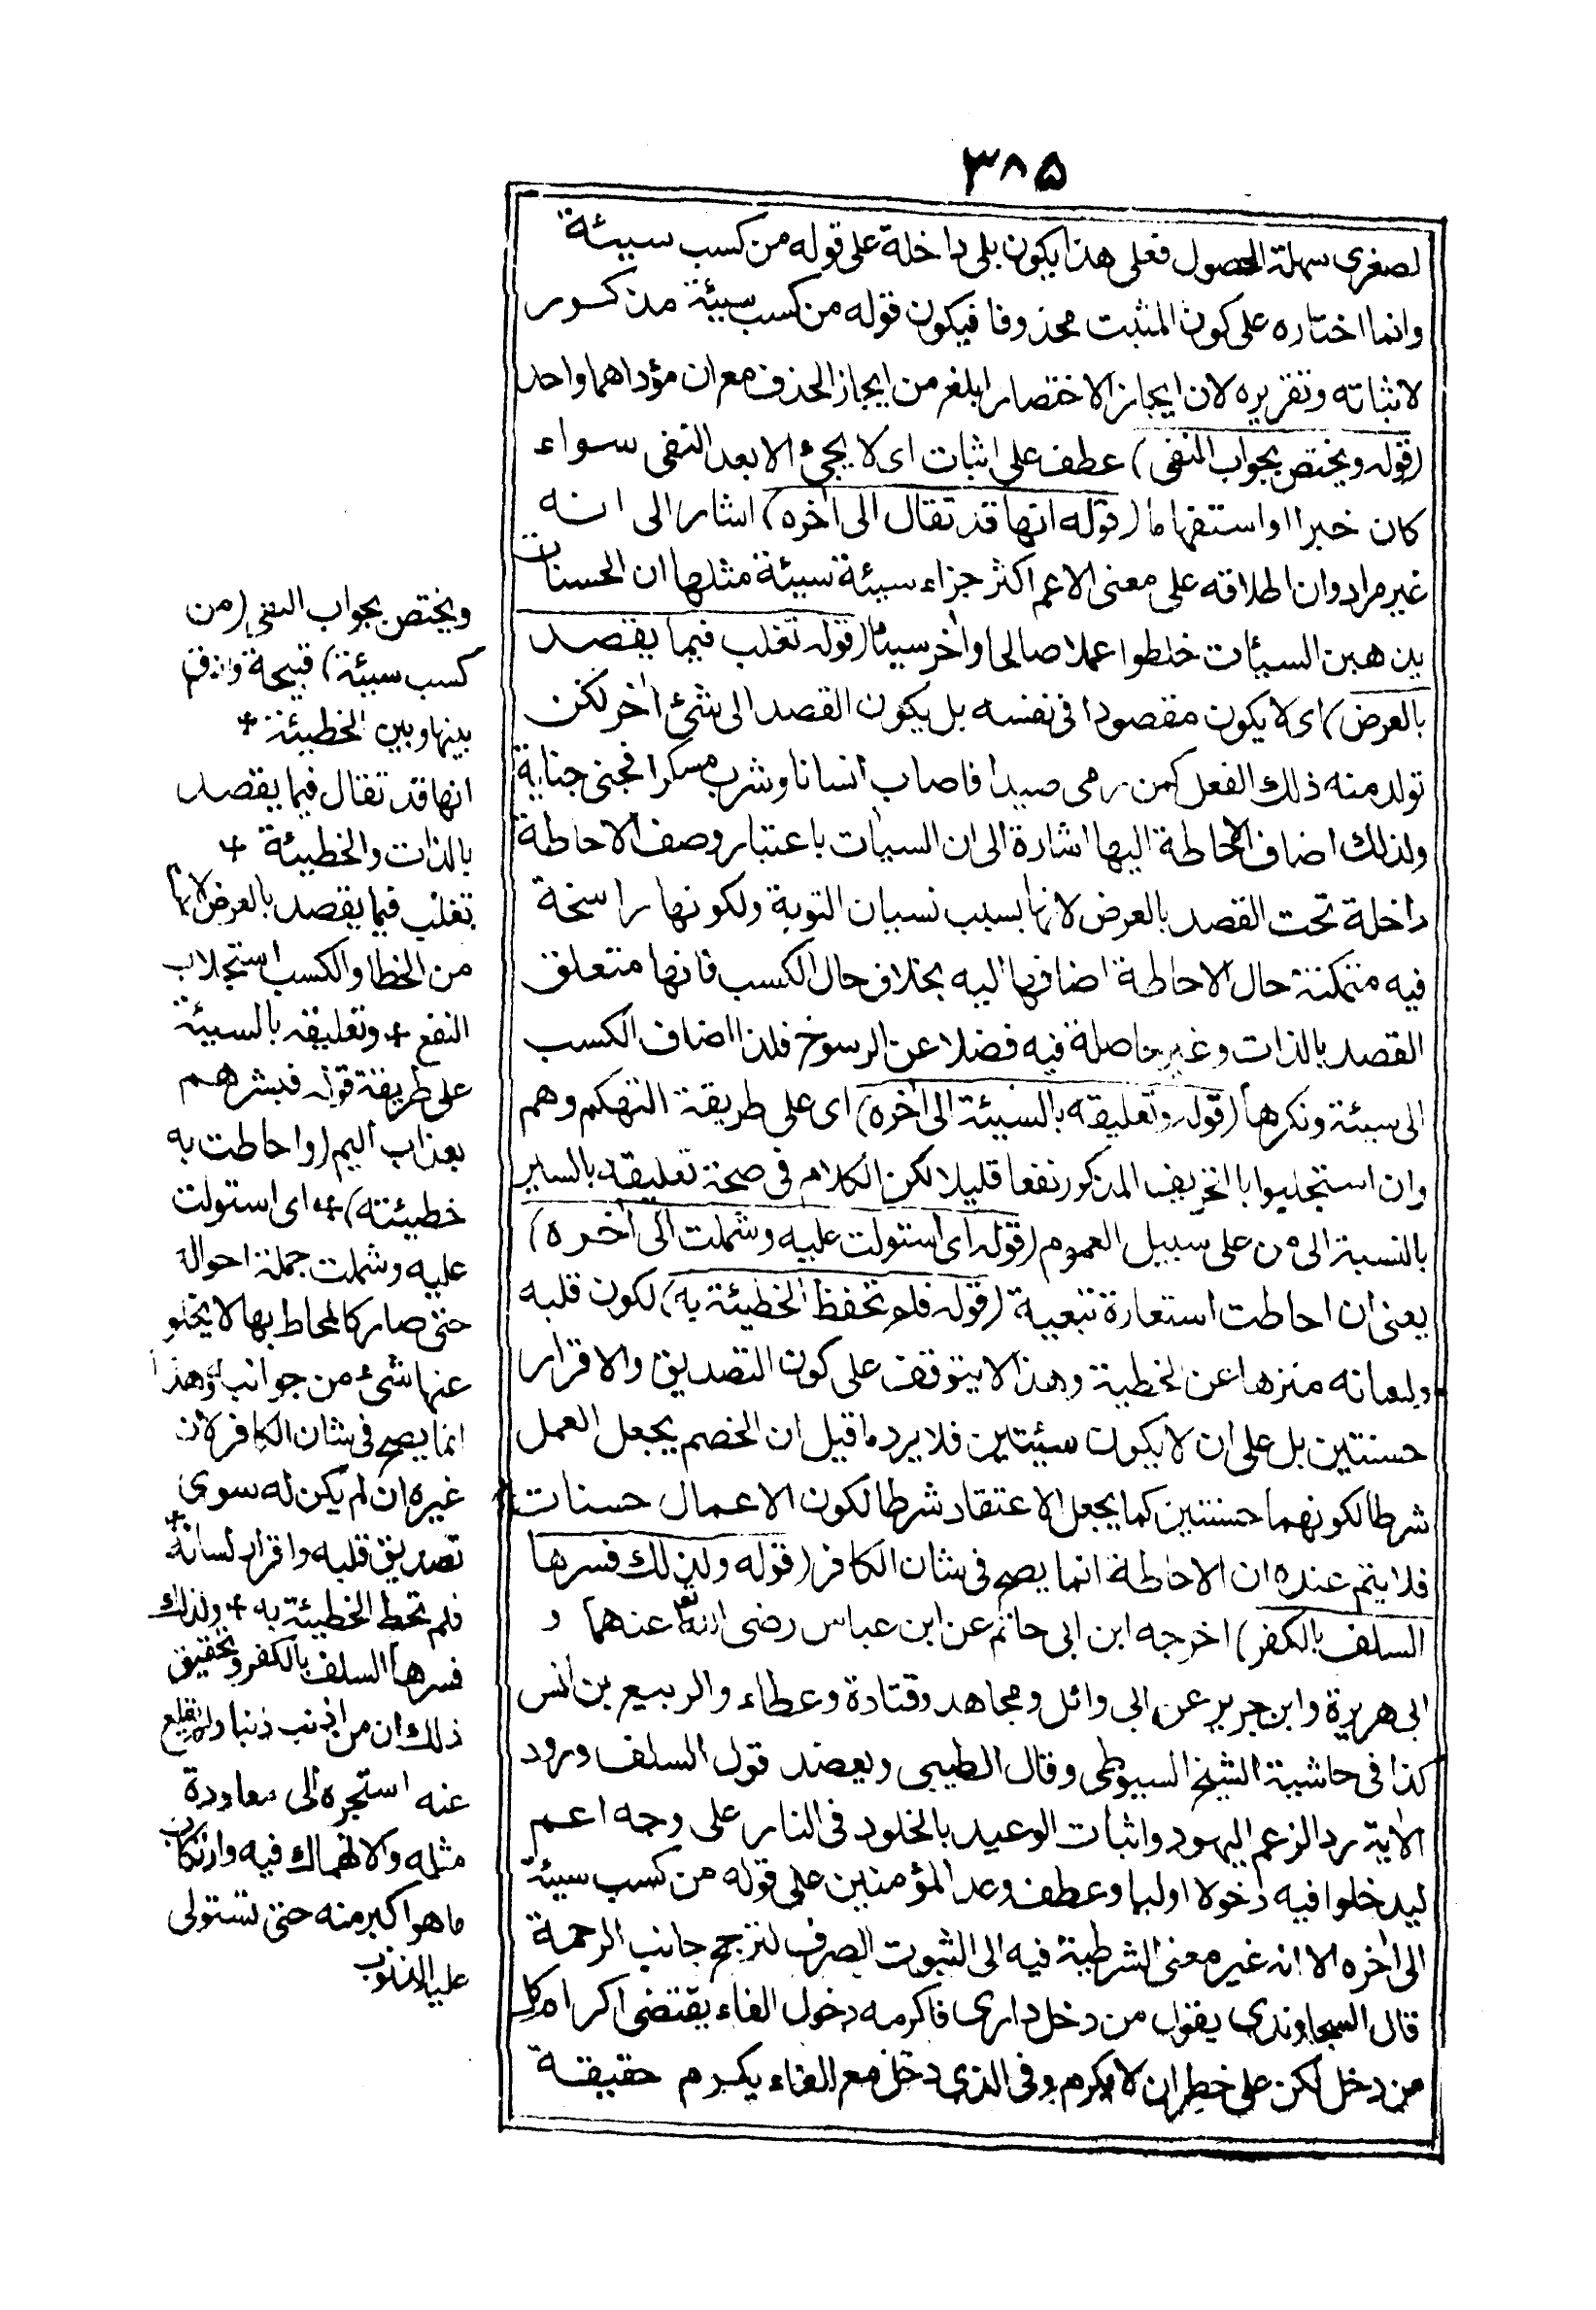 ٣٨٥
لصغرى سهلة الحصول فعلى هذا يكون بلى داخلة على قوله من كسب سيئة
وانما اختاره على كون المثبت محذوفا فيكون قوله من كسب سيئة مذكور
لاثباته وتقريره لان ايجاز الاختصار ابلغ من ايجاز الحذف مع ان مؤداهما واحد
(قوله ويختص بجواب النفى) عطف على اثبات اى لا يجئ الا بعد النفى سواء
كان خبرا او استفهاما (قوله انها قد تقال الى آخره) اشار الى انه
غير مراد وان اطلاقه على معنى الاعم اكثر جزاء سيئة سيئة مثلها ان الحسنات
يذهبن السيئات خلطوا عملا صالحا وآخر سيئا (قوله تغلب فيما يقصد
بالعرض) اى لا يكون مقصودا فى نفسه بل يكون القصد الى شئ آخر لكن
تولد منه ذلك الفعل كمن رمى صيدا فاصاب انسانا وشرب مسكرا فجنى جناية
ولذلك اضاف الاحاطة اليها اشارة الى ان السيات باعتبار وصف الاحاطة
داخلة تحت القصد بالعرض لانها بسبب نسيان التوبة ولكونها راسخة
فيه متمكنة حال الاحاطة اضافها اليه بخلاف حال الكسب فانها متعلق
القصد بالذات وغير حاصلة فيه فضلا عن الرسوخ فلذا اضاف الكسب
الى سيئة ونكرها (قوله وتعليقه بالسيئة الى آخره) اى على طريقة التهكم وهم
وان استجلبوا بالتحريف المذكور نفعا قليلا لكن الكلام فى صحة تعليقه بالسير
بالنسبة الى من على سبيل العموم (قوله اى استولت عليه وشملت الى آخره)
يعنى ان احاطت استعارة تبعية (قوله فلم تحفظ الخطيئة به) لكون قلبه
ولسانه منزها عن الخطية وهذا لا يتوقف على كون التصديق والاقرار
حسنتين بل على ان لا يكون سيئتين فلا يرد ما قيل ان الخصم يجعل العمل
شرطا لكونهما حسنتين كما يجعل الاعتقاد شرطا لكون الاعمال حسنات
فلا يتم عنده ان الاحاطة انما يصح فى شان الكافر (قوله ولذلك فسرها
السلف بالكفر) اخرجه ابن ابى حاتم عن ابن عباس رضى الله عنهما و
ابى هريرة وابن جرير عن ابى وائل ومجاهد وقتادة وعطاء والربيع بن انس
كذا فى حاشية الشيخ السيوطى وقال الطيبى ويعضد قول السلف ورود
الآية ردا لزعم اليهود واثبات الوعيد بالخلود فى النار على وجه اعم
ليدخلوا فيه دخولا اوليا وعطف وعد المؤمنين على قوله من كسب سيئة
الى آخره الا انه غير معنى الشرطية فيه الى الثبوت الصرف لترجح جانب الرحمة
قال السجاوندى يقول من دخل دارى فاكرمه دخول الفاء يقتضى اكرام كل
من دخل لكن على خطر ان لا يكرم وفى الذى دخل مع الفاء يكرم حقيقة
ويختص بجواب النفى (من
كسب سيئة) قبيحة والفرق
بينها وبين الخطيئة +
انها قد تقال فيما يقصد
بالذات والخطيئة +
تغلب فيما يقصد بالعرض لانها
من الخطا والكسب استجلاب
النفع + وتعليقه بالسيئة
على طريقة قوله فبشرهم
بعذاب اليم (واحاطت به
خطيئته) + اى استولت
عليه وشملت جملة احواله
حتى صار كالمحاط بها لا يخلو
عنها شئ من جوانبه وهذا
انما يصح فى شان الكافر لان
غيره ان لم يكن له سوى
تصديق قلبه واقرار لسانه +
فلم تحط الخطيئة به + ولذلك
فسرها السلف بالكفر وتحقيق
ذلك ان من اذنب ذنبا ولم يقلع
عنه استجره الى معاودة
مثله والانهماك فيه وارتكاب
ما هو اكبر منه حتى تستولى
عليه الذنوب